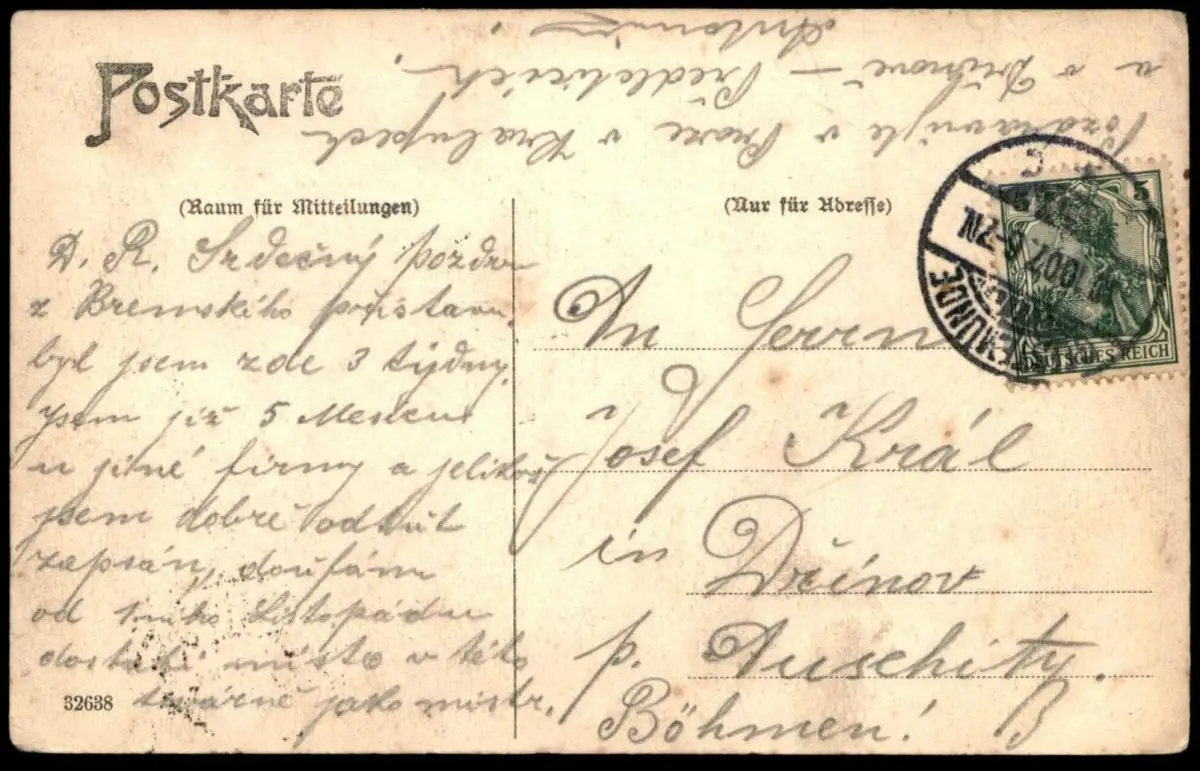 Postkarte
(Raum für Mitteilungen)
D. R. Srdečný pozdrav
z Bremského přístavu.
byl jsem zde 3 týdny.
Jsem již 5 Mesicu
u jiné firmy a jelikož
jsem dobře odtut
zapsán, doufám
od 1ního Listopádu
dostati místo v této
továrně jako mistr.
Pozdravujte v Praze v Kralupech
a v Dřínově – Předleticích.
Antonín
32638
(Nur für Adresse)
An Herrn
Josef Král
in Dřínov
p. Auschitz.
Böhmen!
5
DEUTSCHES REICH